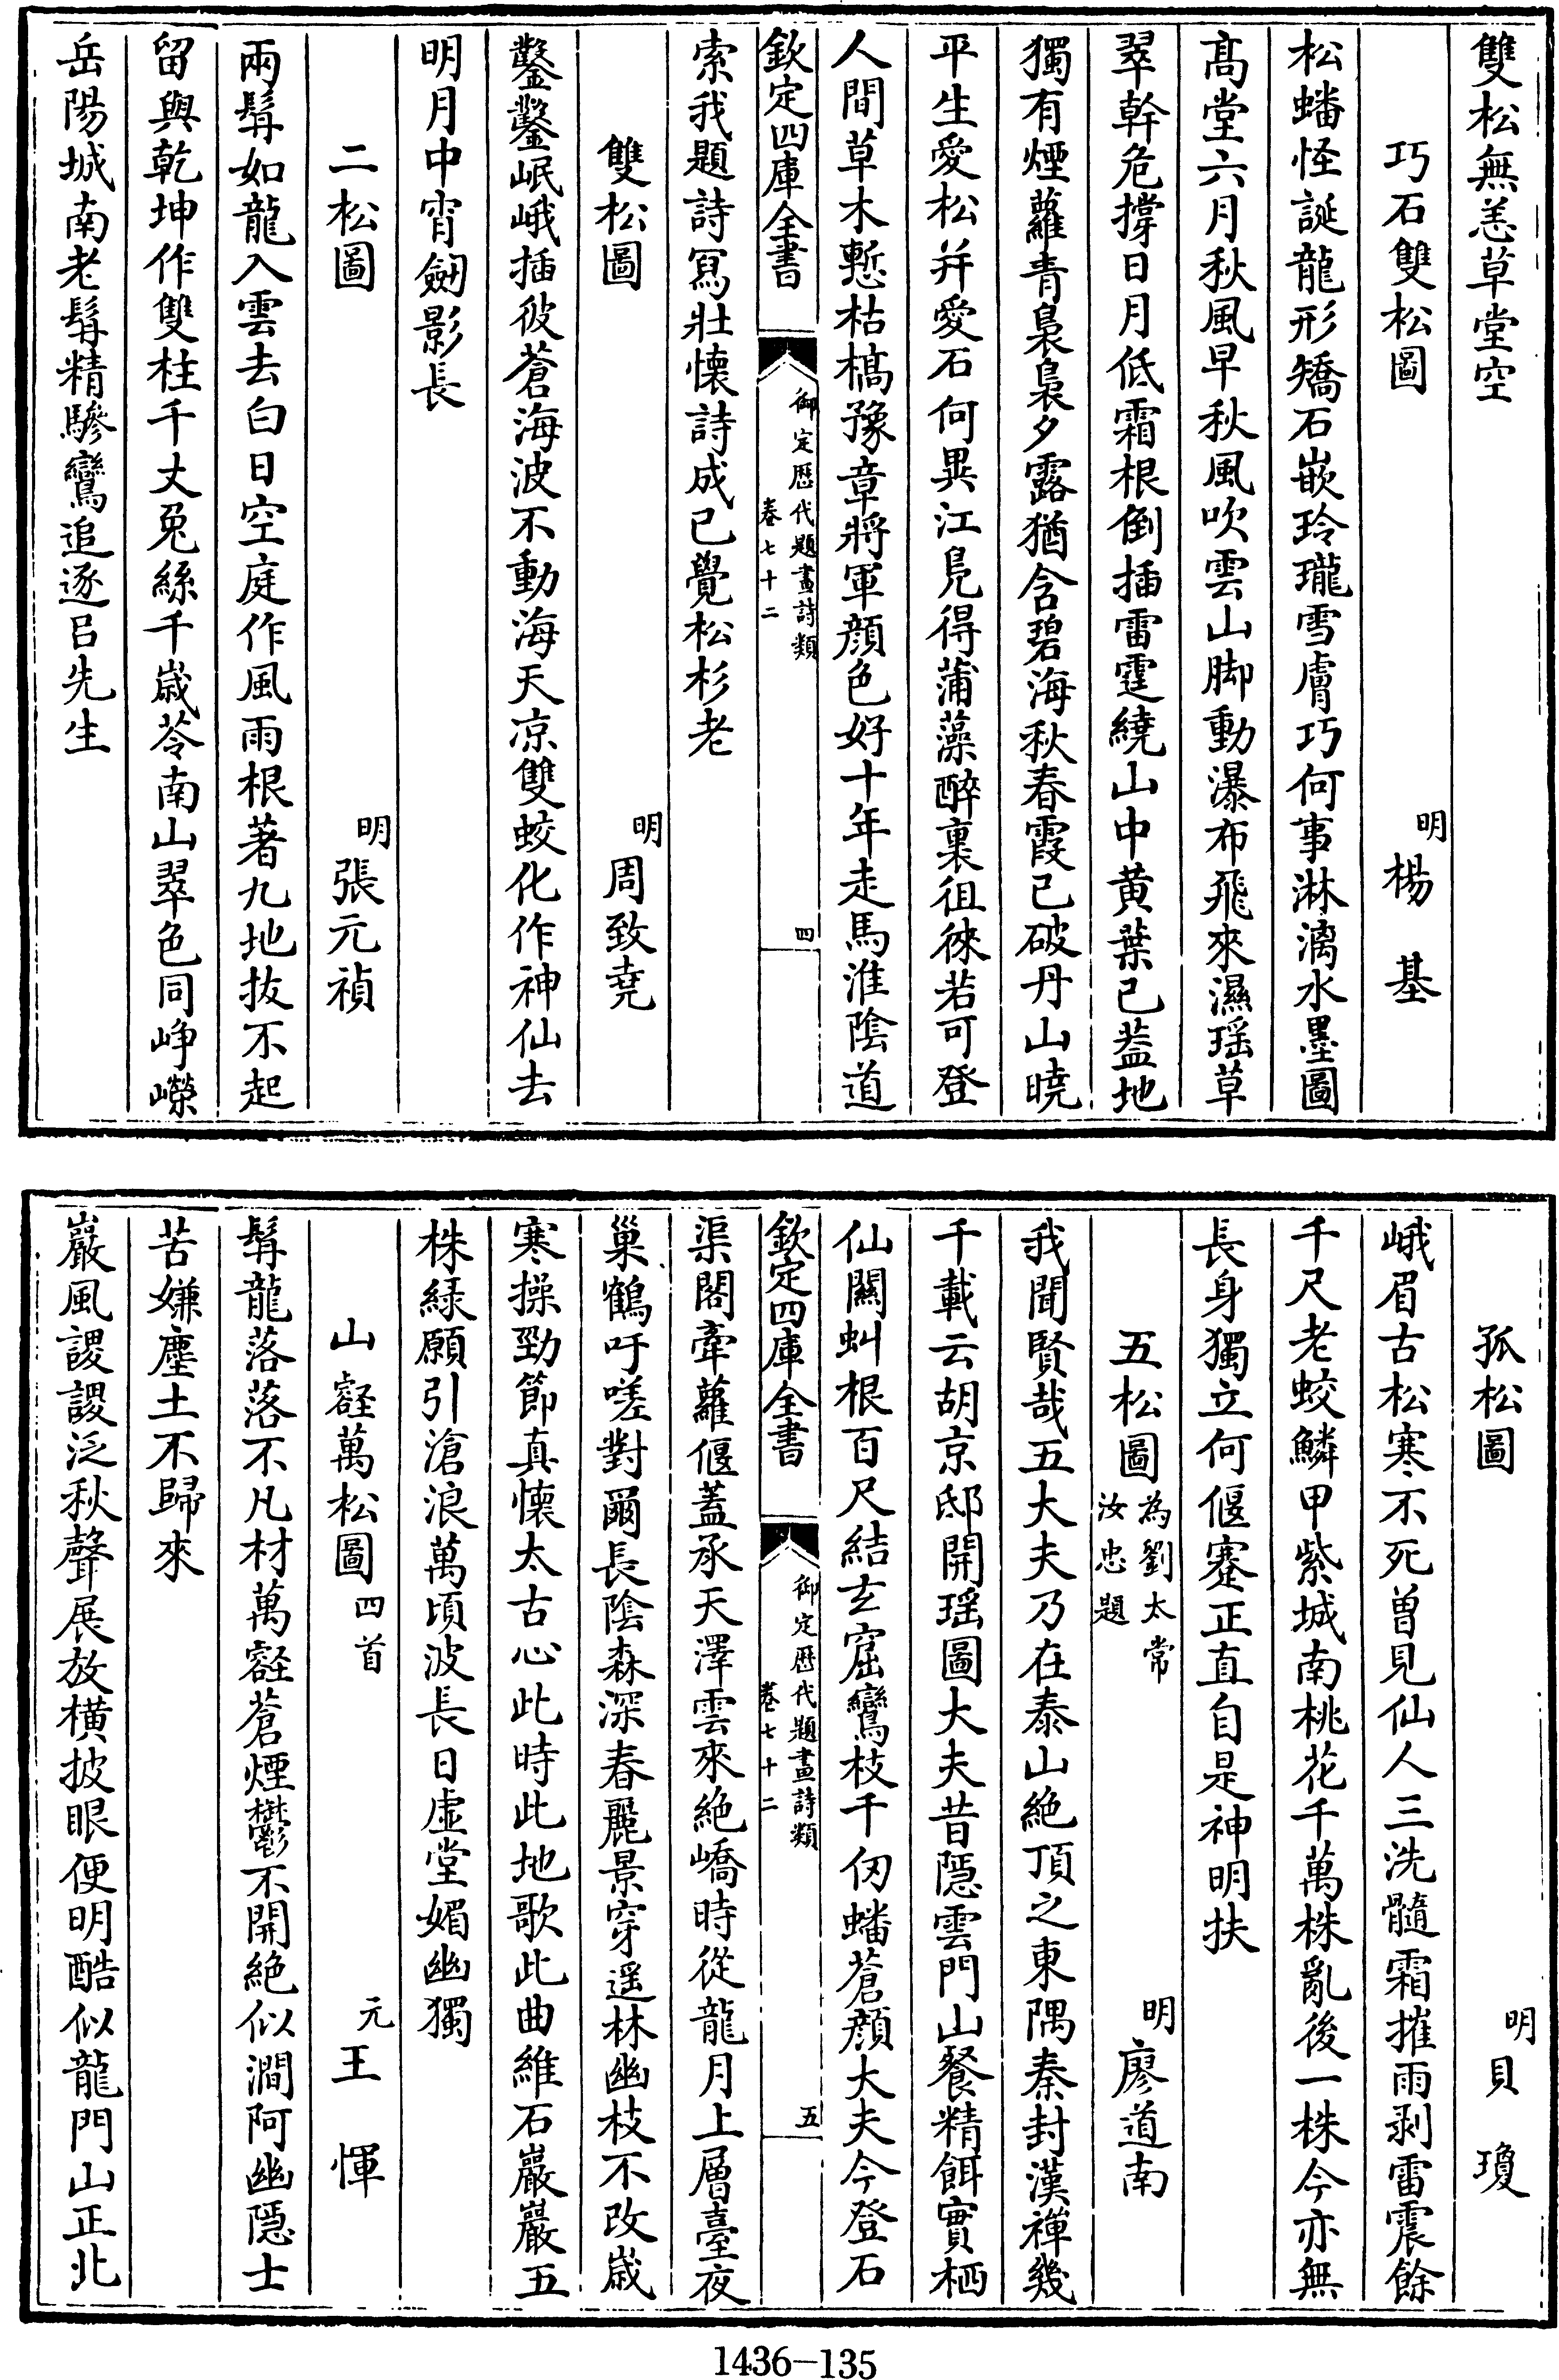 雙松無恙草堂空
巧石雙松圖 明楊基
松蟠怪誕龍形矯石嵌玲瓏雪膚巧何事淋漓水墨圖
髙堂六月秋風早秋風吹雲山脚動瀑布飛來濕瑶草
翠幹危撐日月低霜根倒插雷霆繞山中黄葉已葢地
獨有煙蘿青裊裊夕露猶含碧海秋春霞已破丹山曉
平生愛松并愛石何異江鳬得蒲藻醉裏徂徠若可登
人間草木慙枯槁豫章將軍顔色好十年走馬淮隂道
欽定四庫全書
御定歴代題畫詩類
卷七十二
四
索我題詩寫壯懐詩成已覺松杉老
雙松圖 明周致堯
鑿鑿岷峨插彼蒼海波不動海天凉雙蛟化作神仙去
明月中宵劒影長
二松圖 明張元禎
兩髯如龍入雲去白日空庭作風雨根著九地抜不起
留與乾坤作雙柱千丈兎絲千嵗苓南山翠色同崢嶸
岳陽城南老髯精驂鸞追逐吕先生
孤松圖 明貝瓊
峨眉古松寒不死曽見仙人三洗髓霜摧雨剥雷震餘
千尺老蛟鱗甲紫城南桃花千萬株亂後一株今亦無
長身獨立何偃蹇正直自是神明扶
五松圖 為劉太常汝忠題 明廖道南
我聞賢哉五大夫乃在泰山絶頂之東隅秦封漢禪幾
千載云胡京邸開瑶圖大夫昔隠雲門山餐精餌實栖
仙闗虬根百尺結玄窟鸞枝千仞蟠蒼顔大夫今登石
欽定四庫全書
御定歴代題畫詩類
卷七十二
五
渠閣牽蘿偃蓋承天澤雲來絶嶠時從龍月上層臺夜
巢鶴吁嗟對爾長隂森深春麗景穿遥林幽枝不改嵗
寒操勁節真懐太古心此時此地歌此曲維石巖巖五
株緑願引滄浪萬頃波長日虚堂媚幽獨
山壑萬松圖 四首 元王惲
髯龍落落不凡材萬壑蒼煙鬱不開絶似澗阿幽隠士
苦嫌塵土不歸來
巖風謖謖泛秋聲展放横披眼便明酷似龍門山正北
1436-135